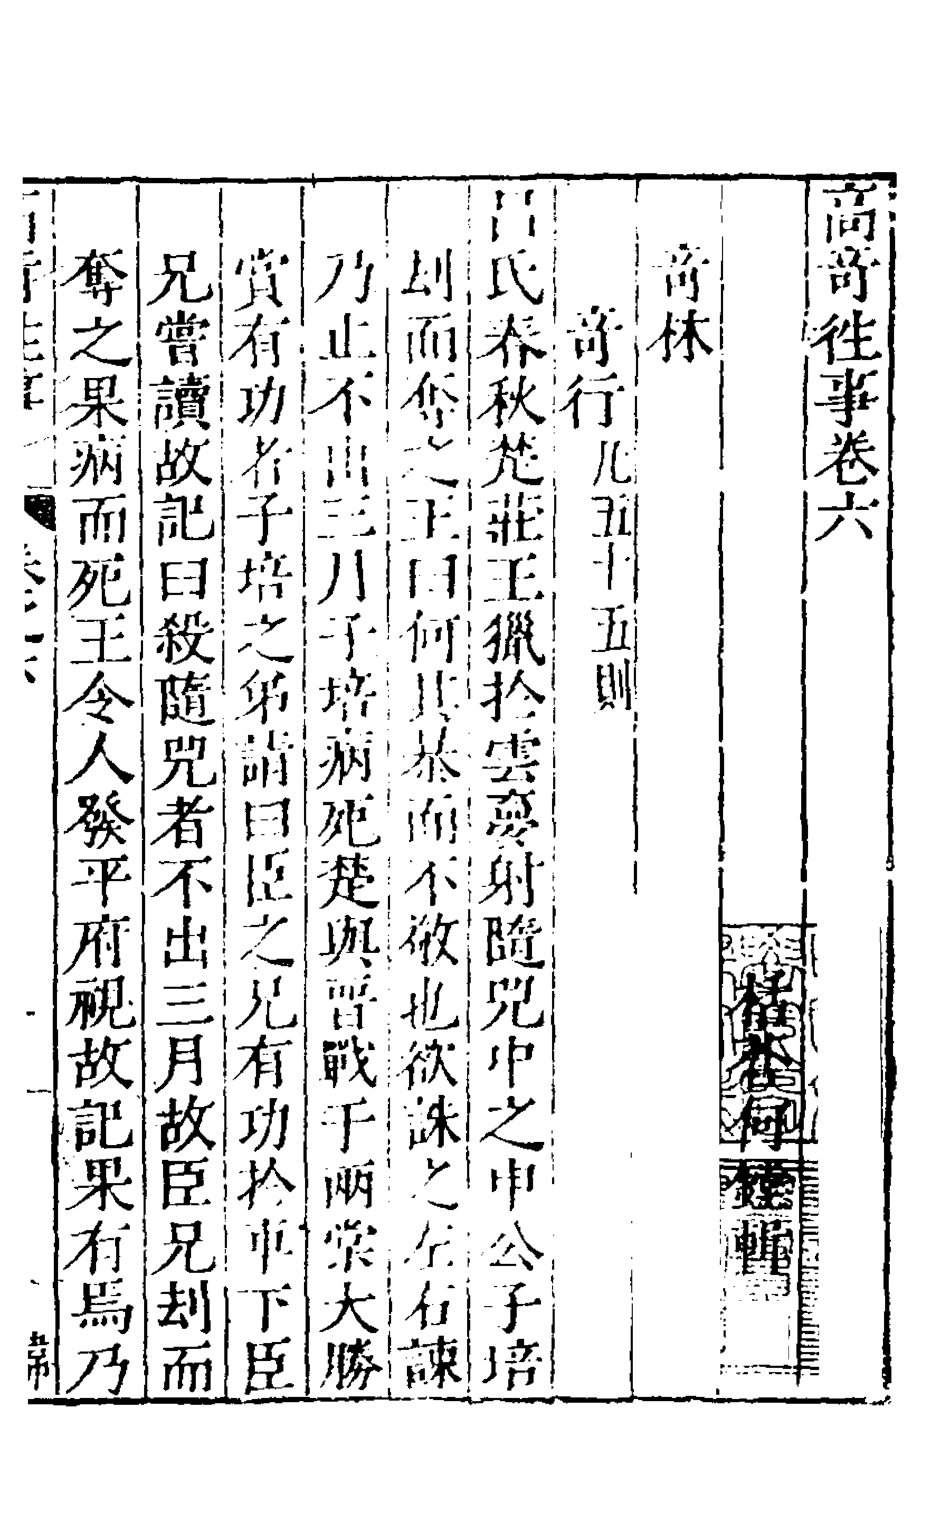 高奇徃事卷六
栝蒼何鏜輯
奇林
奇行凡五十五則
呂氏春秋楚莊王獵於雲夢射隨兕中之申公子培
刦而奪之王曰何其暴而不敬也欲誅之左右諫
乃止不出三月子培病死楚與晉戰于兩棠大勝
賞有功者子培之弟請曰臣之兄有功於車下臣
兄嘗讀故記曰殺隨兕者不出三月故臣兄刦而
奪之果病而死王令人發平府視故記果有焉乃